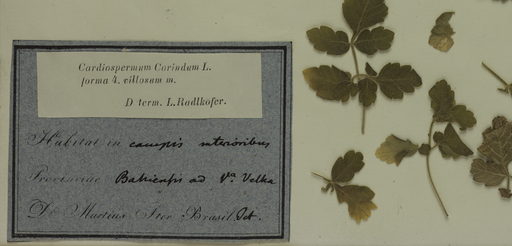 Cardiospermum Corindum L.
forma 4. villosum m.
D term. L. Radlkofer.
Habitat in campis interioribus
Provinciae Bahiensis ad Va. Velha
Dr. Martius Iter Brasil.